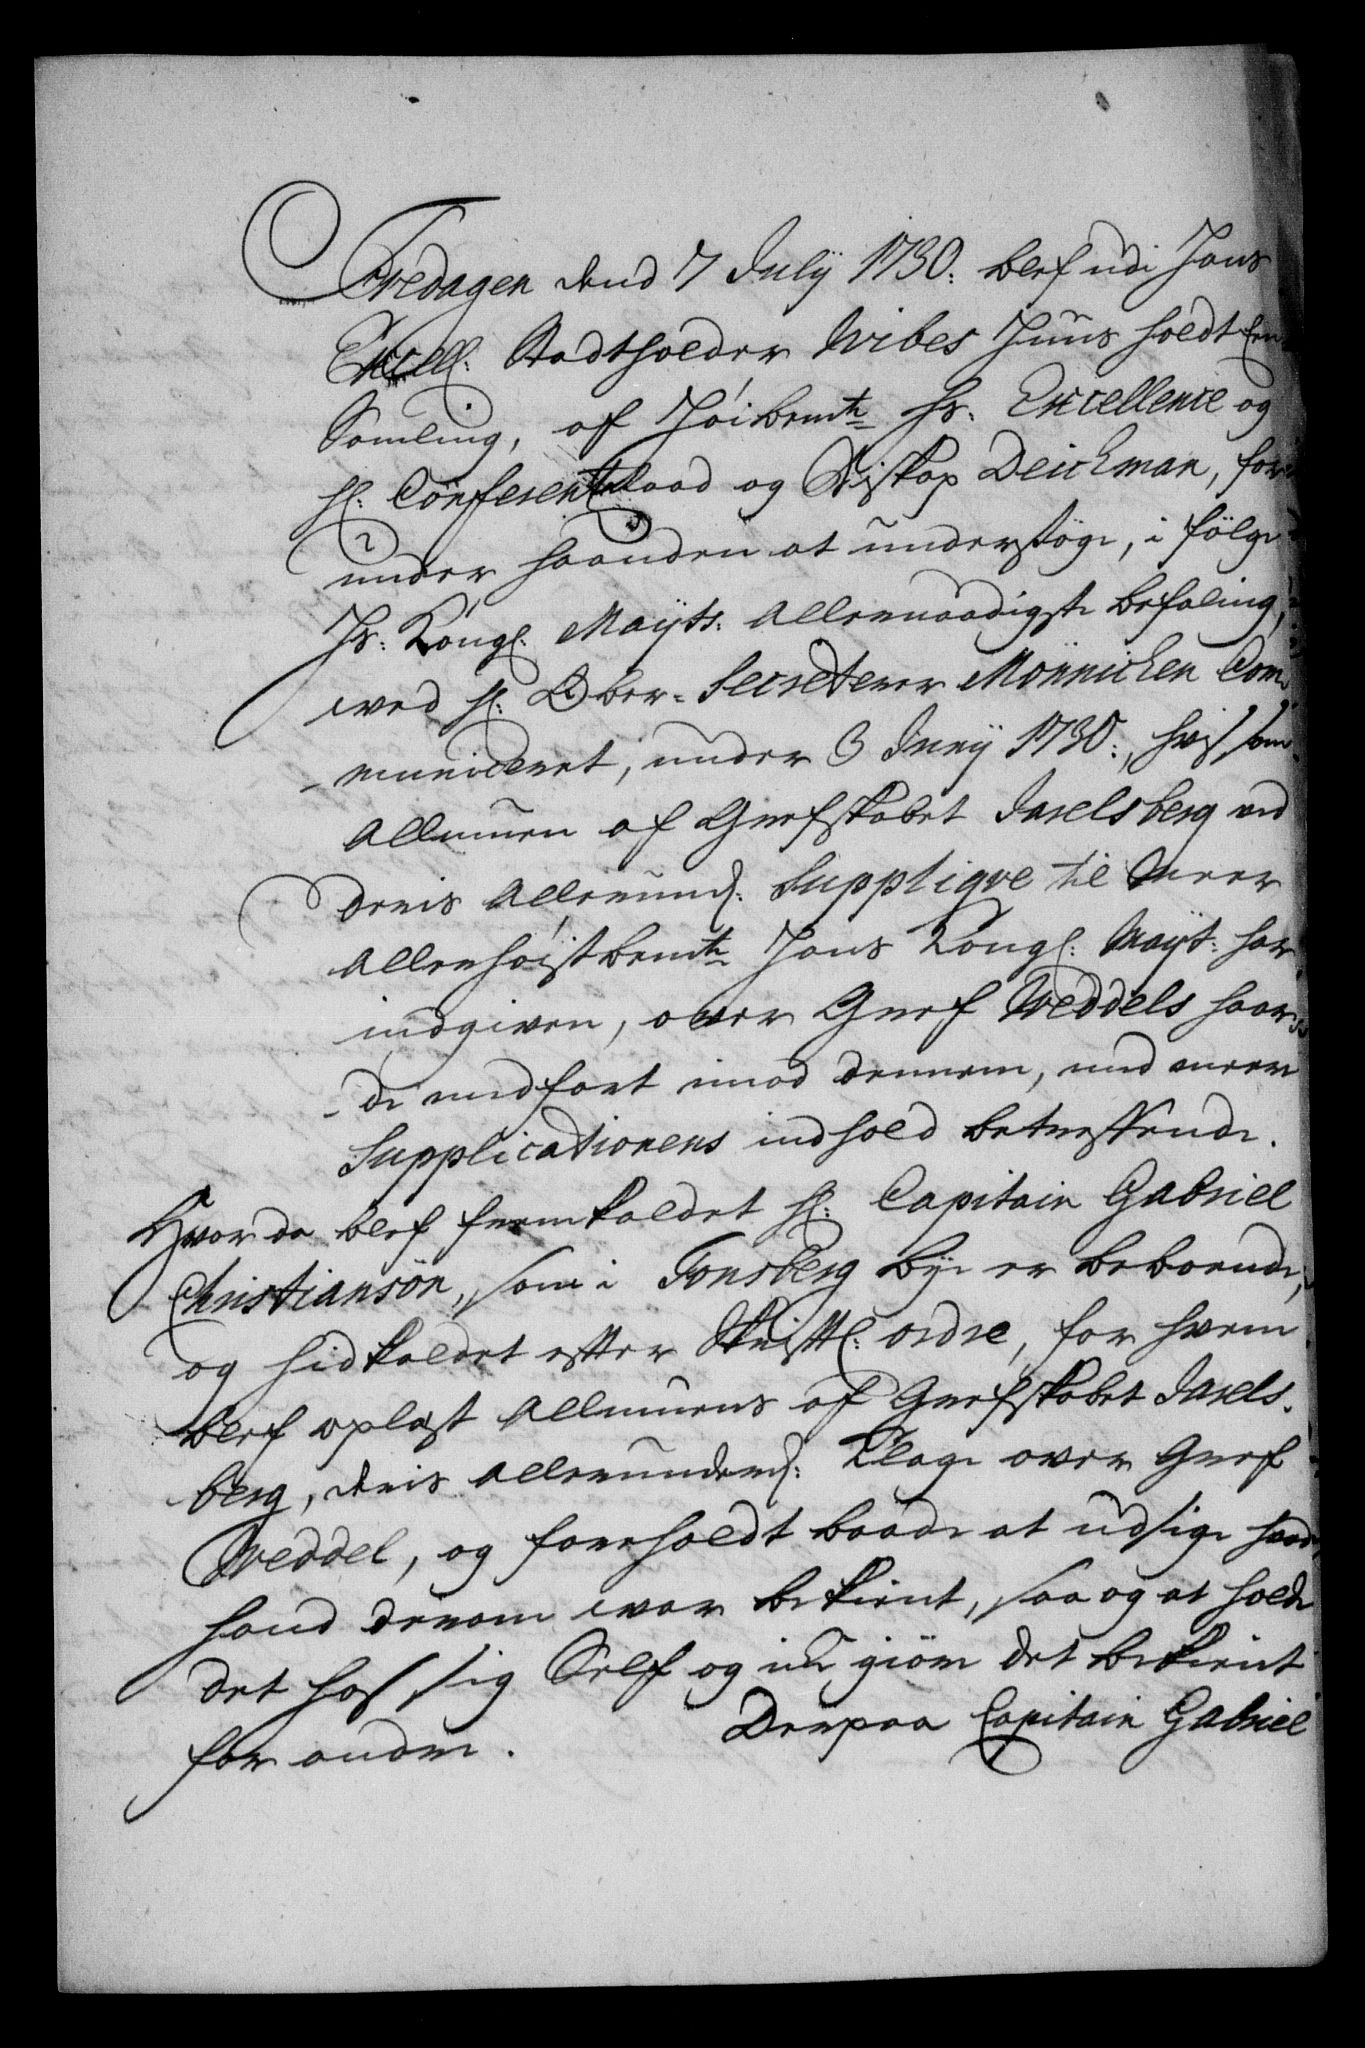 Fredagen dend 7 July 1730. blef udi Hans
Excell. Stadtholder Wibes Huus holdt en
Samling, af Høibemte Hr. Excellence og
Hr. Conferentzraad og Biskop Deichman, for
under haanden at undersøge, i følge
Hs. Kongl. Mayts. Allernaadigste befaling,
ved Hr. Ober-Secreterer Mönnichen Com-
municeret, under 3 Juny 1730., hvis som
Allmuen af Grefskabet Jarlsberg ved
deris Allerund. Supplique til
Allerhøistbemte Hans Kongl. Mayt. har
indgiven, over Gref Weddels haar-
de medfart imod dennem, med meere
Supplicationens indhold betreffende.
Hvor da blef fremkaldet Hr. Capitain Gabriel
Christiansön, som i Tonsberg bye er beboende,
og hidkaldet efter Skriftl. ordre, for hvem
blef oplæst Allmuens af Grefskabet Jarls-
berg, deris allerunderd. Klage over Gref
Weddel, og foreholdt baade at udsige hvad
hand derom war bekient, saa og at holde
det hos sig Self og icke giöre det bekient
for andre. Derpaa Capitain Gabriel